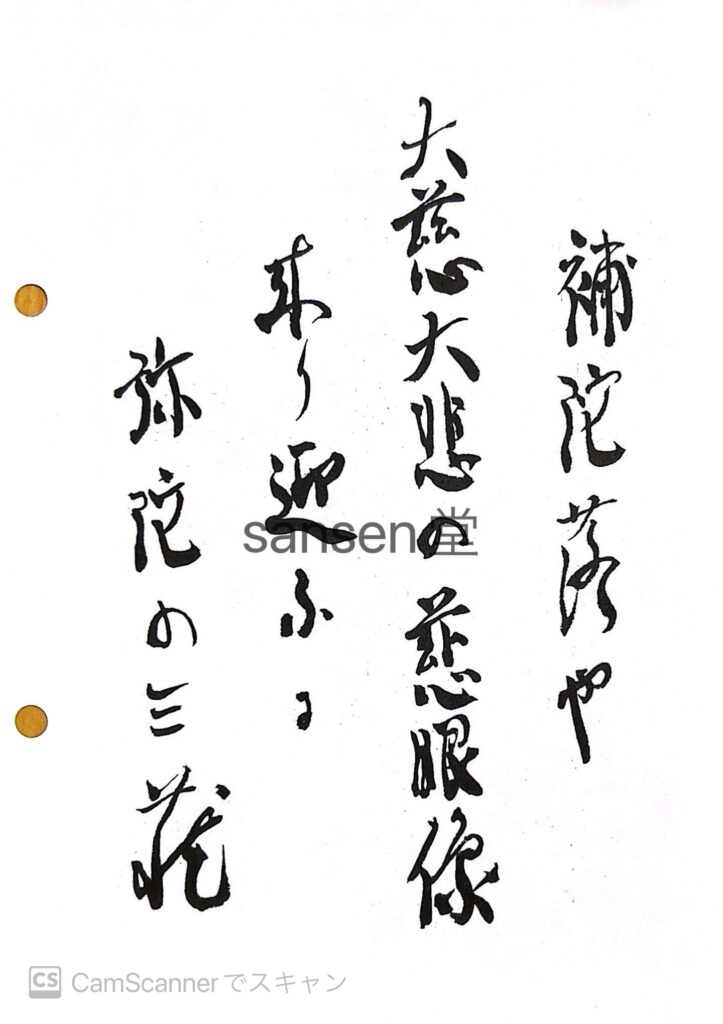 補陀落や
大慈大悲の慈眼像
来り迎ふに
弥陀の三藐
sansen堂
CS CamScannerでスキャン